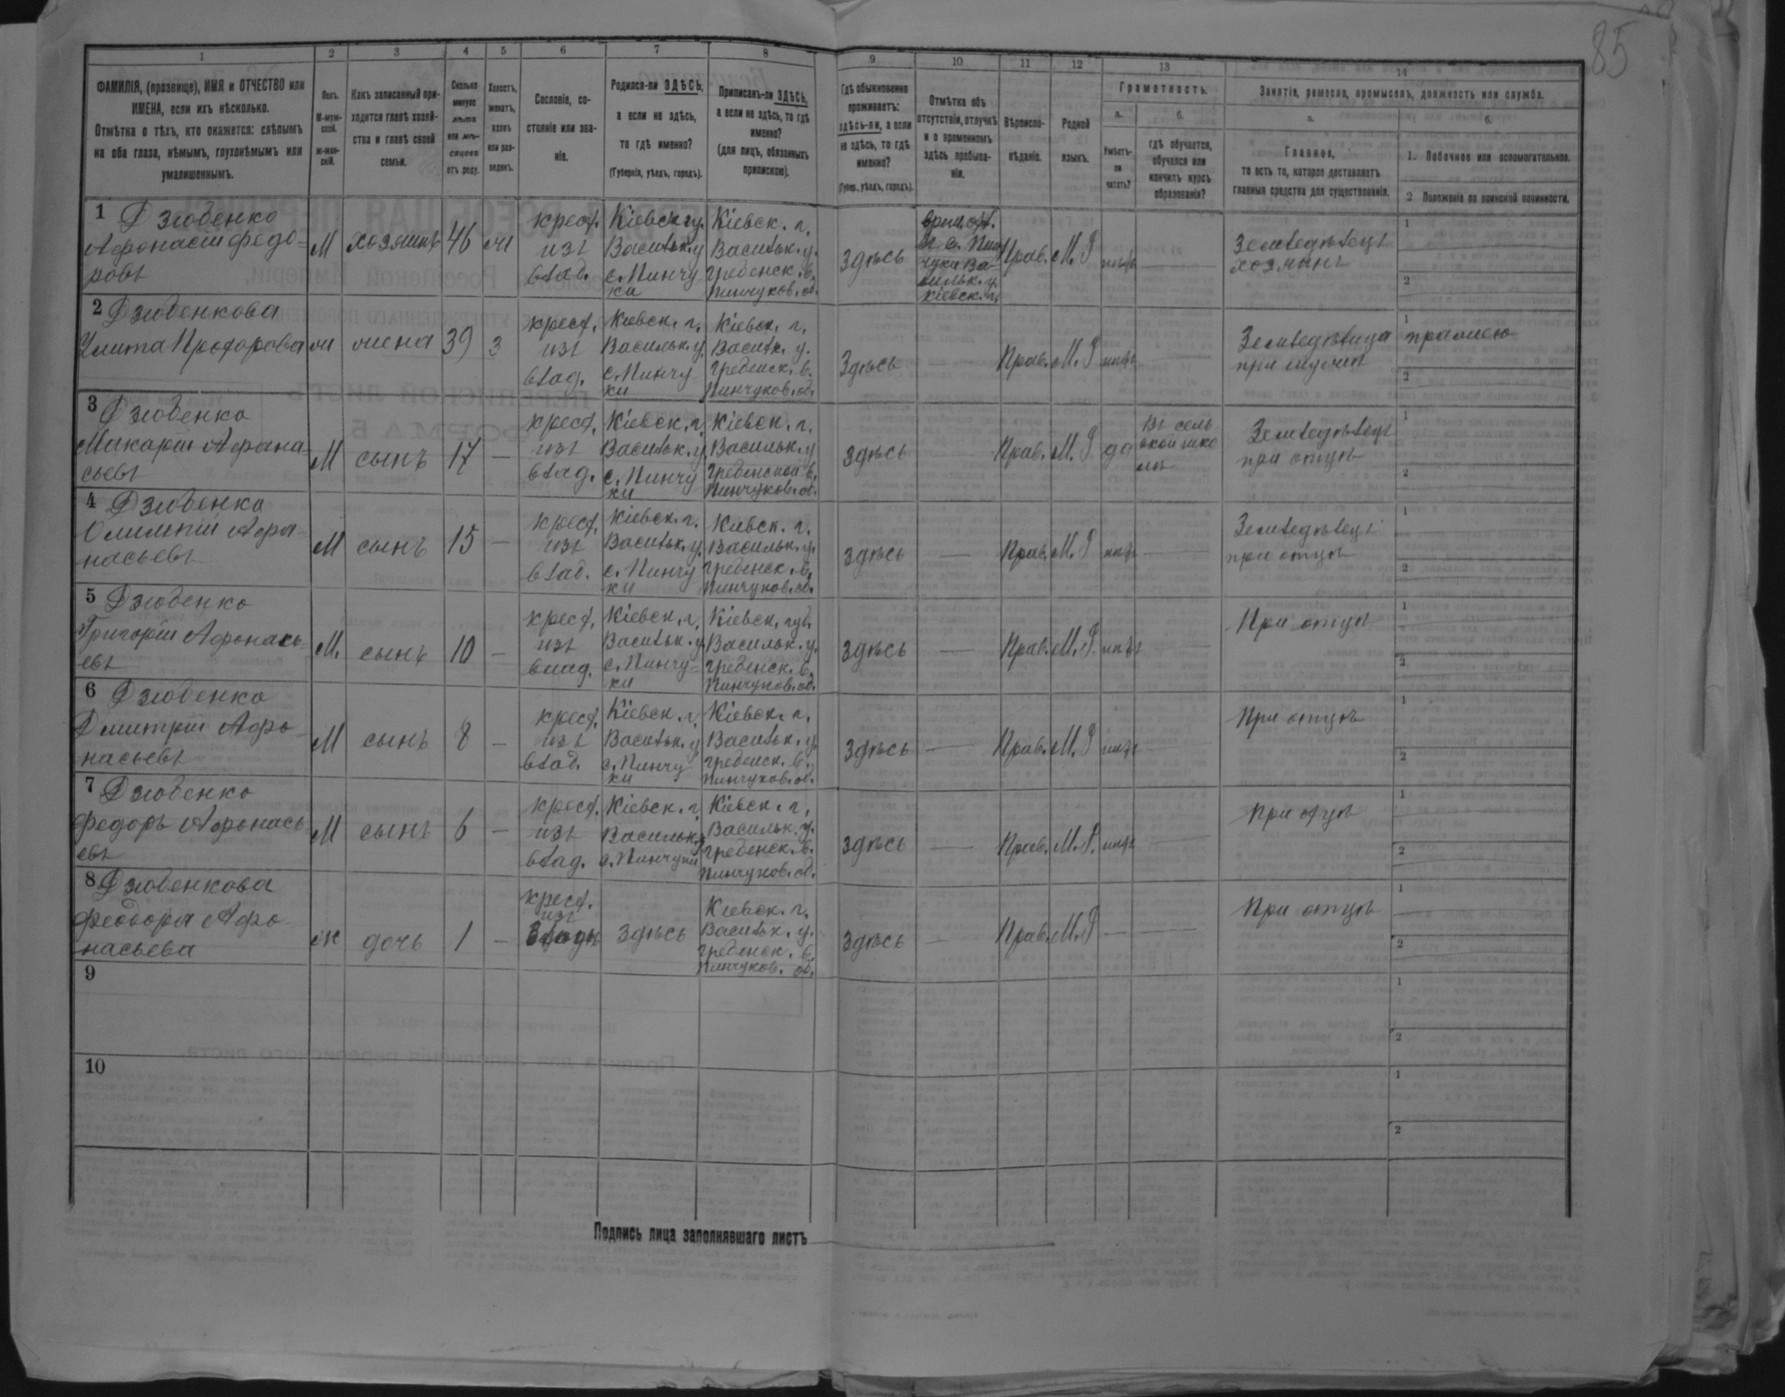 85
1 2 3 4 5 6 7 8 9 10 11 12 13 14
ФАМИЛІЯ, (прозвище), ИМЯ и ОТЧЕСТВО или
ИМЕНА, если ихъ нѣсколько.
Отмѣтка о тѣхъ, кто окажется: слѣпымъ
на оба глаза, нѣмымъ, глухонѣмымъ или
умалишеннымъ.
Полъ.
М-муж-
ской.
Ж-жен-
скій.
Какъ записанный при-
ходится главѣ хозяй-
ства и главѣ своей
семьи.
Сколько
минуло
лѣтъ
или мѣ-
сяцевъ
отъ роду.
Холостъ,
женатъ,
вдовъ
или раз-
веденъ.
Сословіе, со-
стояніе или зва-
ніе.
Родился-ли ЗДѢСЬ,
а если не здѣсь,
то гдѣ именно?
(Губернія, уѣздъ, городъ).
Приписанъ-ли ЗДѢСЬ,
а если не здѣсь, то гдѣ
именно?
(для лицъ, обязанныхъ
припискою).
Гдѣ обыкновенно
проживаетъ:
здѣсь-ли, а если
не здѣсь, то гдѣ
именно?
(Губер., уѣздъ, городъ).
Отмѣтка объ
отсутствіи, отлучкѣ
и о временномъ
здѣсь пребыва-
ніи.
Вѣроиспо-
вѣданіе.
Родной
языкъ.
Грамотность.
а.
Умѣетъ-
ли
читать?
б.
гдѣ обучается,
обучался или
кончилъ курсъ
образованія?
Занятіе, ремесло, промыселъ, должность или служба.
а.
Главное,
то есть то, которое доставляетъ
главныя средства для существованія.
б.
1. Побочное или вспомогательное.
2 Положеніе по воинской повинности.
1 Дзюбенко
Афонасій Федо-
ровъ
М хозяинъ 46
крест.
изъ
влад.
Кіевск. г.
Васильк. у.
с. Пинчу
ки
Кіевск. г.
Васильк. у.
Гребенск. в.
Пинчуков. об.
здѣсь
Прав. М. Р
Земледѣлецъ
хозяинъ
1
2
2 Дзюбенкова
Улита Прохорова
жена 39 з
крест.
изъ
влад.
Кіевск. г.
Васильк. у
с. Пинчу
ки
Кіевск. г.
Васильк. у.
Гребенск. в.
Пинчуков. об.
Здѣсь — Прав. М. Р нѣтъ —
1
2
3 Дзюбенко
Макарій Афана-
сьевъ
М сынъ 17 —
крест.
изъ
влад.
Кіевск. г.
Васильк. у.
с. Пинчу
ки
Кіевск. г.
Васильк. у
Гребенской в.
Пинчуков. об.
здѣсь Прав. М. Р да
въ сель
ской шко
лѣ
Земледѣлецъ
при отцѣ
1
2
4 Дзюбенко
Олимпій Афа-
насьевъ
М сынъ 15 —
крест.
изъ
влад.
Кіевск. г.
Васильк. у.
с. Пинчу
ки
Кіевск. г.
Васильк. у.
Гребенск. в.
Пинчуков. об.
здѣсь — Прав. М. Р нѣтъ —
Земледѣлецъ
при отцѣ
1
2
5 Дзюбенко
Григорій Афонась
евъ
М. сынъ 10 —
крест.
изъ
влад.
Кіевск. г.
Васильк. у.
с. Пинчу-
ки
Кіевск. губ.
Васильк. у.
Гребенск. в.
Пинчуков. об.
здѣсь — Прав. М. Р. нѣтъ —
При отцѣ
1
2
6 Дзюбенко
Дмитрій Афо-
насьевъ
М сынъ 8 —
крест.
изъ
влад.
Кіевск. г.
Васильк. у
с. Пинчу
ки
Кіевск. г.
Васильк. у.
Гребенск. в.
Пинчуков. об.
здѣсь — Прав. М. Р нѣтъ —
При отцѣ
1
2
7 Дзюбенко
Федоръ Афонась
евъ
М сынъ 6 —
крест.
изъ
влад.
Кіевск. г.
Васильк. у
с. Пинчуки
Кіевск. г.
Васильк. у.
Гребенск. в.
Пинчуков. об.
здѣсь — Прав. М. Р. нѣтъ —
При отцѣ
1
2
8 Дзюбенкова
Феодора Афо-
насьева
ж дочь 1 —
крест.
изъ
здѣсь
Кіевск. г.
Васильк. у.
Гребенск. в.
Пинчуков. об.
здѣсь — Прав. М. Р — —
При отцѣ
1
2
9
1
2
10
1
2
Подпись лица заполнявшаго листъ